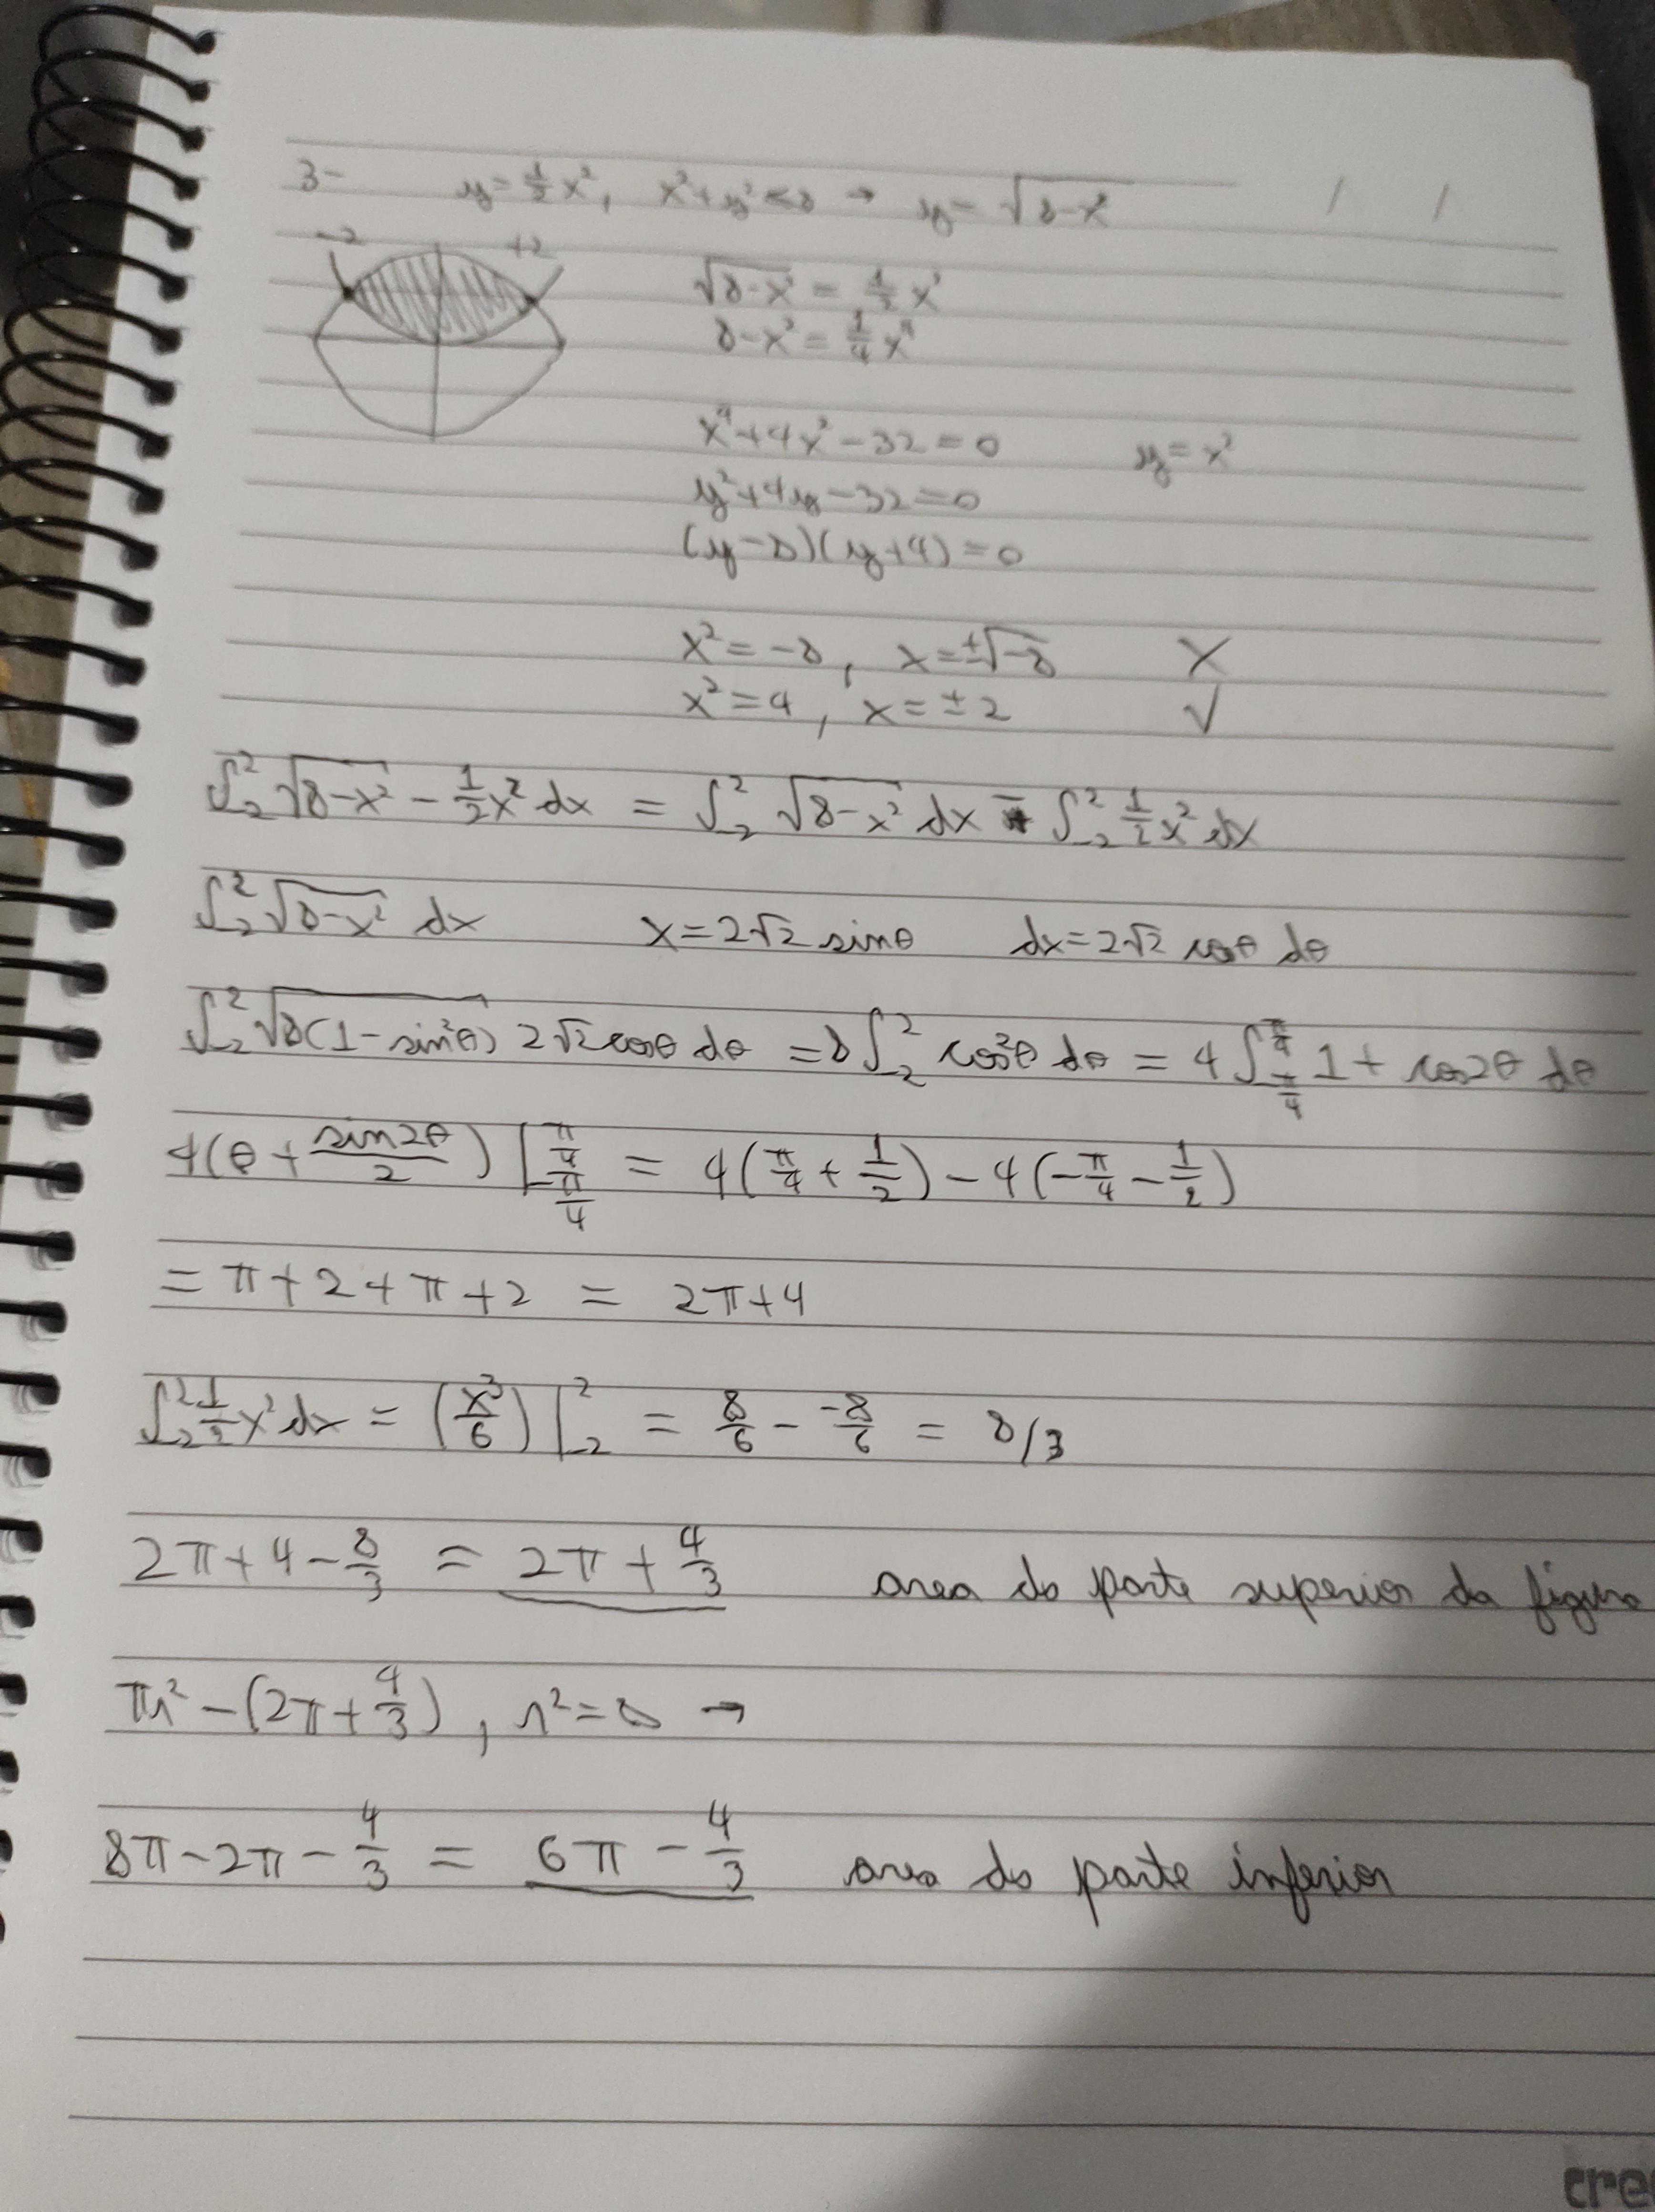 3- y = 1/2 x², x²+y² ≤ 8 → y = √(8-x²)
-2 +2
√(8-x²) = 1/2 x²
8-x² = 1/4 x⁴
x⁴+4x²-32=0 y = x²
y²+4y-32=0
(y-8)(y+4)=0
x² = -8, x = ±√-8 X
x² = 4, x = ±2 √
∫₋₂² √(8-x²) - 1/2 x² dx = ∫₋₂² √(8-x²) dx - ∫₋₂² 1/2 x² dx
∫₋₂² √(8-x²) dx x = 2√2 sinθ dx = 2√2 cosθ dθ
∫₋₂² √(8(1-sin²θ)) 2√2 cosθ dθ = 8∫₋₂² cos²θ dθ = 4∫_{-π/4}^{π/4} 1 + cos2θ dθ
4(θ + sin2θ/2) |_{-π/4}^{π/4} = 4(π/4 + 1/2) - 4(-π/4 - 1/2)
= π+2+π+2 = 2π+4
∫₋₂² 1/2 x² dx = (x³/6) |₋₂² = 8/6 - -8/6 = 8/3
2π+4-8/3 = 2π + 4/3 area da parte superior da figura
πr² - (2π + 4/3), r² = 8 →
8π-2π-4/3 = 6π - 4/3 area da parte inferior
cre